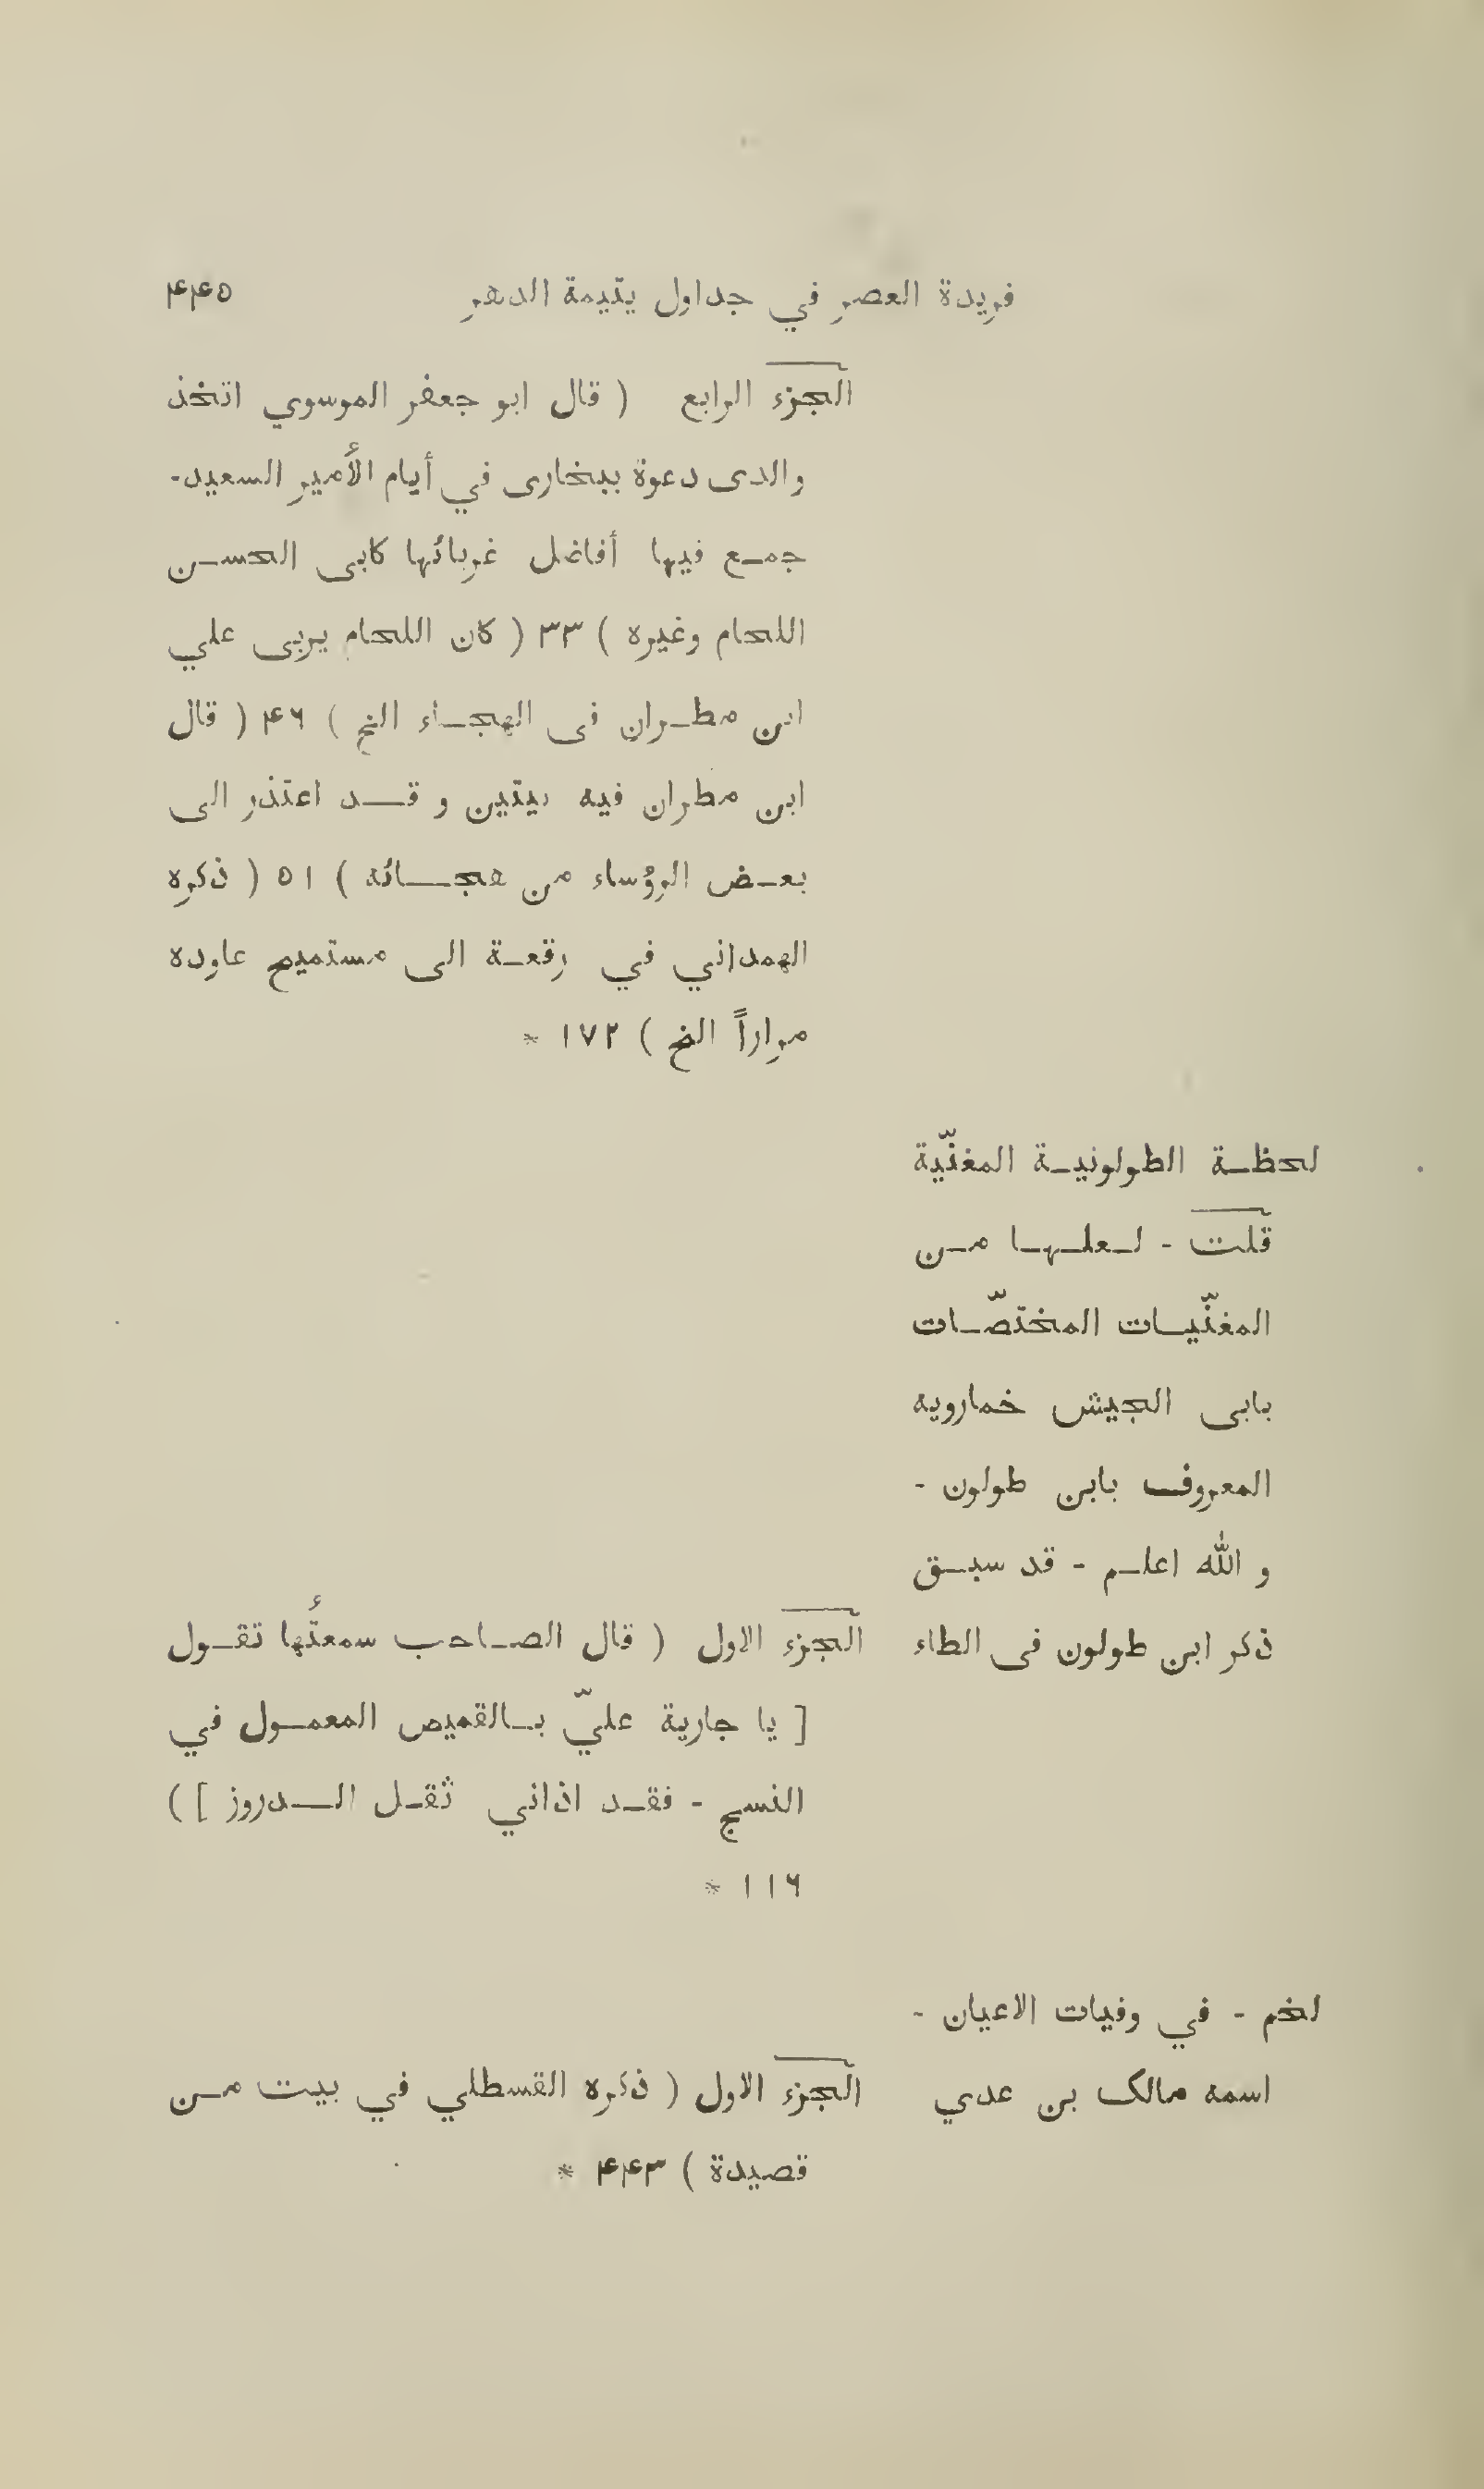 فريدة العصر في جداول يتيمة الدهر ۴۴۵
الجزء الرابع ( قال ابو جعفر الموسوي اتخذ
والدى دعوة ببخارى في أيام الأمير السعيد-
جمع فيها أفاضل غربائها كابى الحسن
اللحام وغيره ) ٣٣ ( كان اللحام يربى علي
ابن مطران فى الهجاء الخ ) ۴۶ ( قال
ابن مطران فيه بيتين و قد اعتذر الى
بعض الرؤساء من هجائه ) ٥١ ( ذكره
الهمداني في رقعة الى مستميح عاوده
مراراً الخ ) ١٧٢ *
لحظة الطولونية المغنّية
قلت - لعلها من
المغنّيات المختصّات
بابى الجيش خمارويه
المعروف بابن طولون -
و الله اعلم - قد سبق
ذكر ابن طولون فى الطاء
الجزء الاول ( قال الصاحب سمعتُها تقول
[ يا جارية عليّ بالقميص المعمول في
النسيج - فقد اذاني ثقل الدروز ] )
١١٦ *
لخم - في وفيات الاعيان -
اسمه مالک بن عدي
الجزء الاول ( ذكره القسطلي في بيت من
قصيدة ) ۴۴٣ *